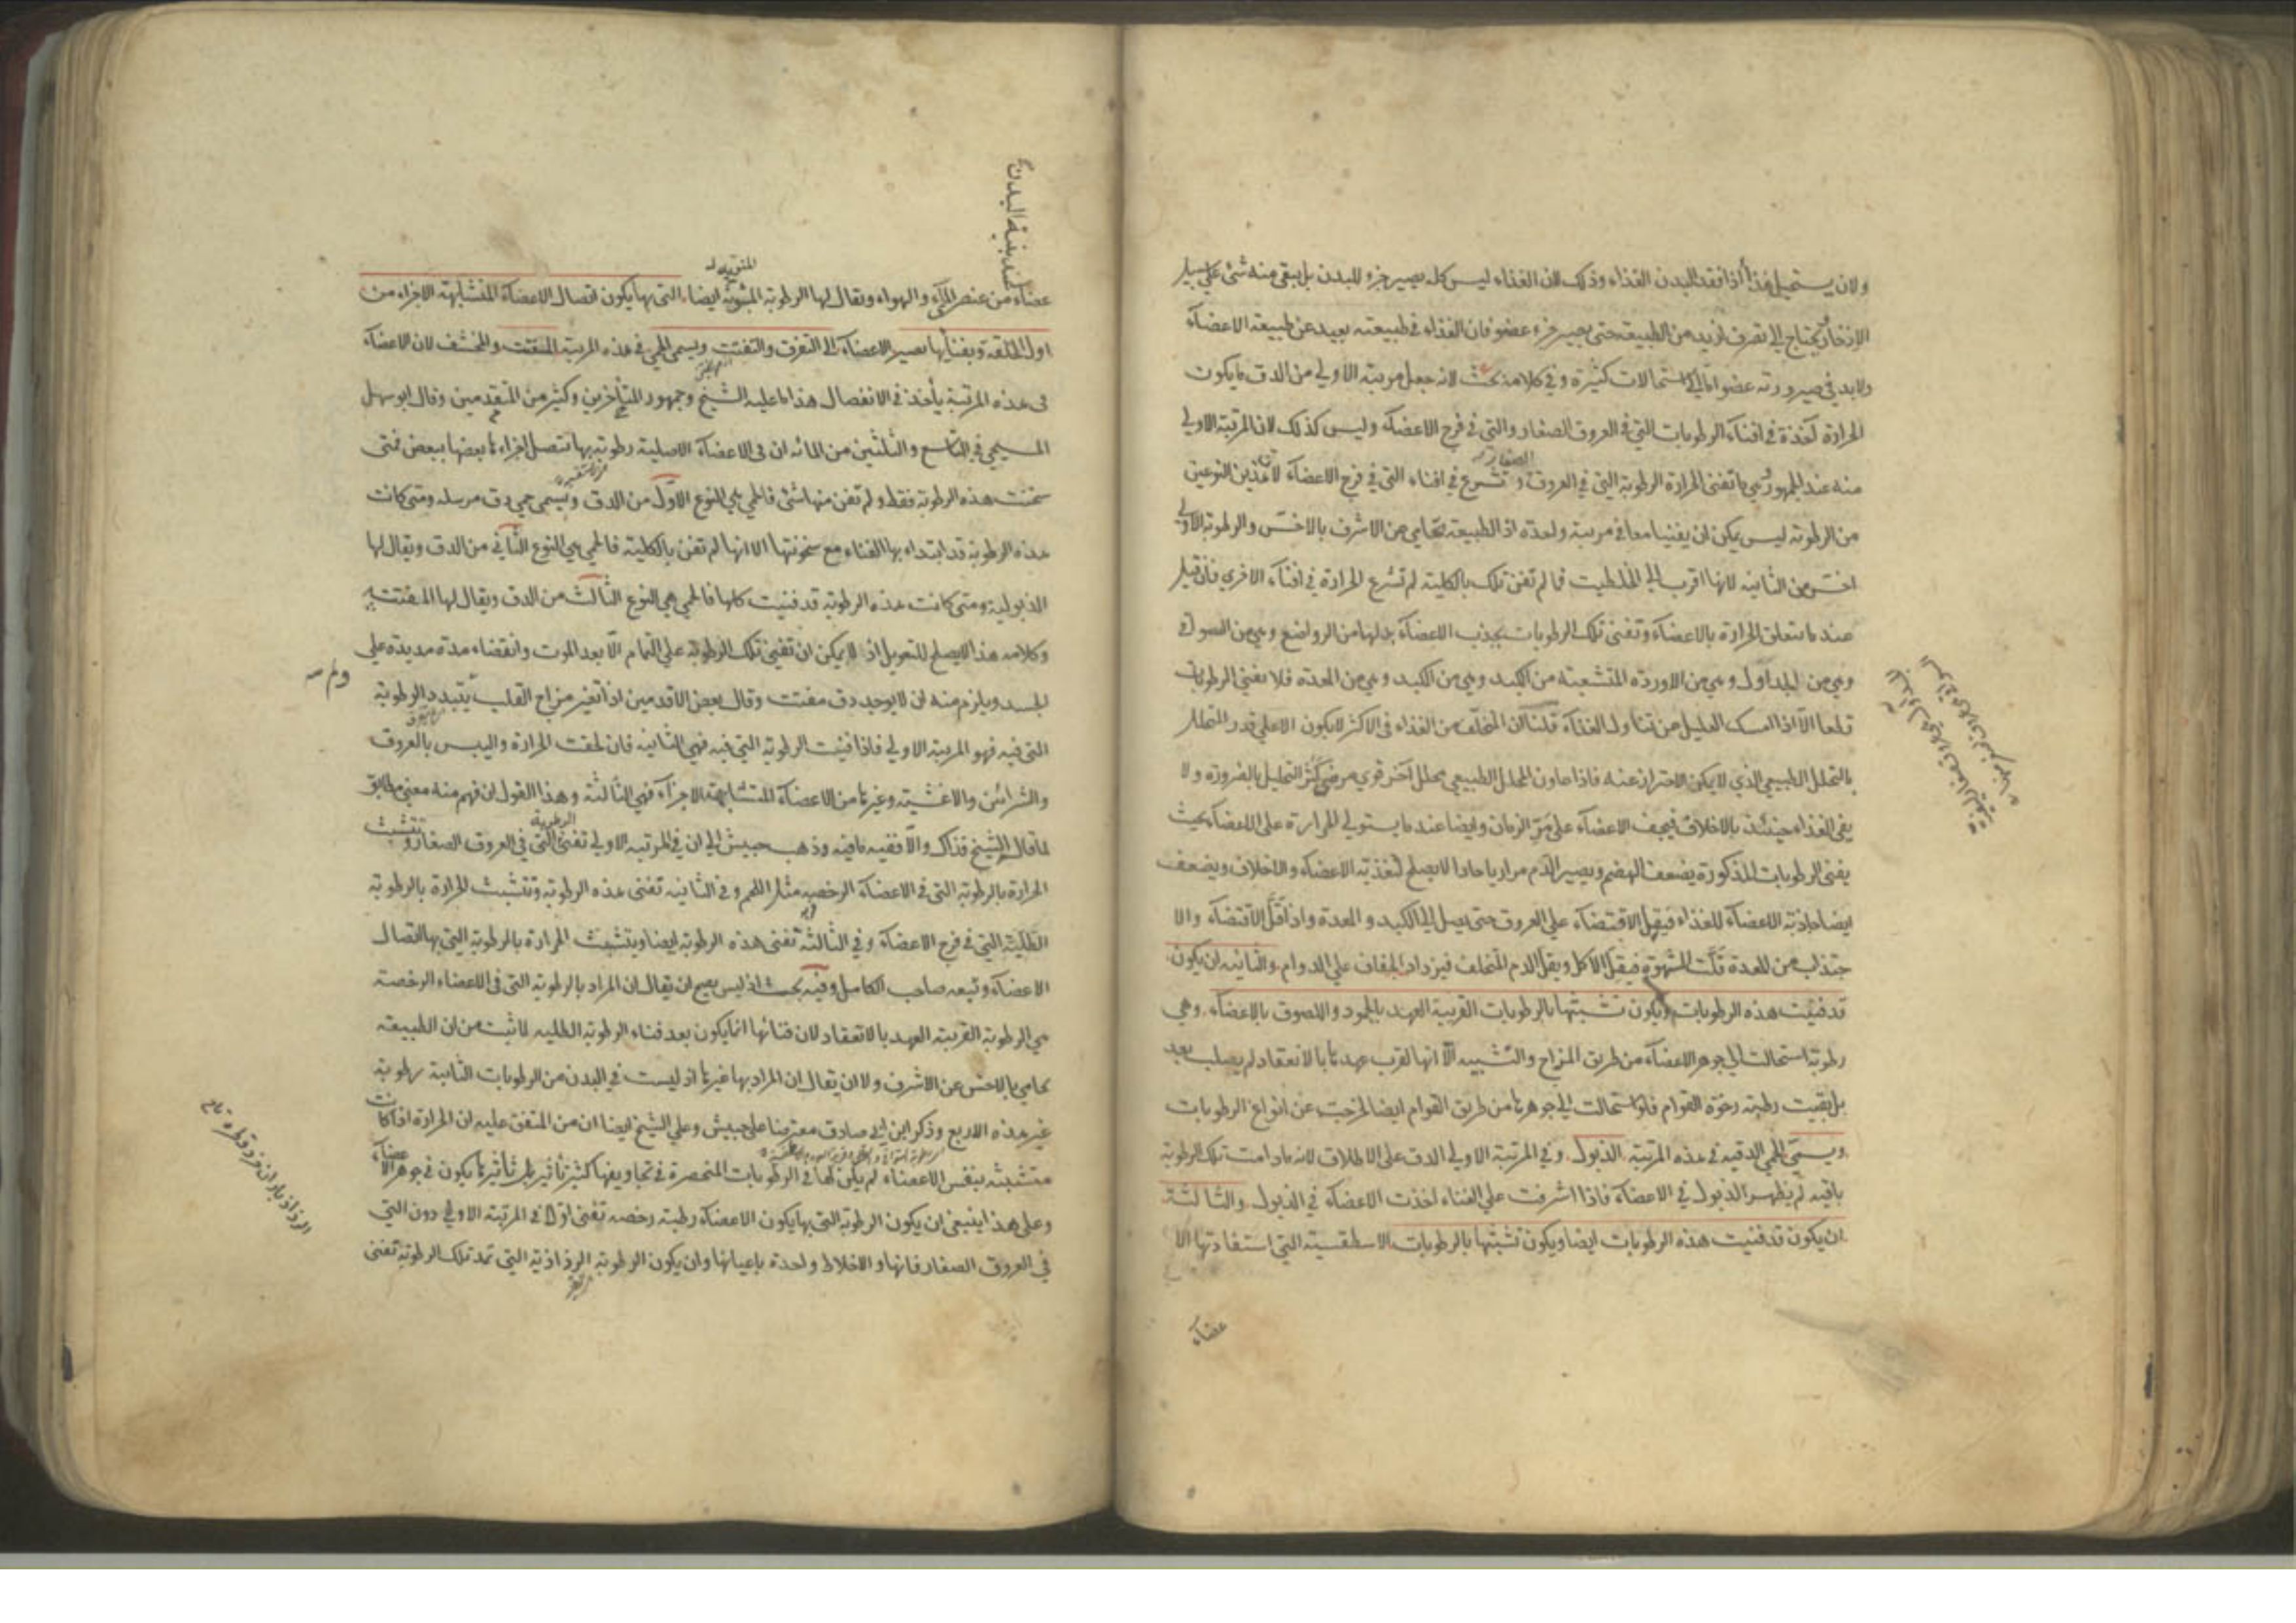 ولان يستحيل غذاء اذا فقد البدن الغذاء وذلك لان الغذاء ليس كله يصير جزء للبدن بل يبقى منه شئ على سبيل
الادخار يحتاج الى تصرف ازيد من الطبيعة حتى يصير جزء عضو فان الغذاء في طبيعته بعيد عن طبيعة الاعضاء
ولابد في صيرورته عضوا الى استحالات كثيرة وفي كلامه بحث لانه جعل مرتبة الاولى من الدق ما يكون
الحرارة آخذة في افناء الرطوبات التي في العروق الصغار والتي في فرج الاعضاء وليس كذلك لان المرتبة الاولى
منه عند الجمهور هي ما تفنى الحرارة الرطوبة التي في العروق الصغار وتشرع في افناء التي في فرج الاعضاء لان هذين النوعين
من الرطوبة ليس يمكن ان يفنيا معا في مرتبة واحدة اذ الطبيعة تحامي عن الاشرف بالاخس والرطوبة الاولى
اخس من الثانية لانها اقرب الى الخلطيت فما لم تفن تلك بالكلية لم تشرع الحرارة في افناء الاخرى فان قيل
عند ما تتعلق الحرارة بالاعضاء وتفنى تلك الرطوبات يجذب الاعضاء بدلها من الرواضع وهي من السواقي
وهي من الجداول وهي من الاوردة المتشعبة من الكبد وهي من الكبد وهي من المعدة فلا تفنى الرطوبات
قلعا الا اذا امسك العليل من تناول الغذاء قلنا لان المتخلف من الغذاء في الاكثر لا يكون الا على قدر المتحلل
بالتحلل الطبيعي الذي لا يمكن الاحتراز عنه فاذا عاون المحلل الطبيعي محلل آخر قوي مرضي كثر التحليل بالضرورة ولا
يفى الغذاء حينئذ بالاخلاف فيجف الاعضاء على مر الزمان وايضا عند ما يستولي الحرارة على الاعضاء بحيث
يفنى الرطوبات المذكورة يضعف الهضم ويصير الدم مراريا حادا لا يصلح لتغذية الاعضاء والاخلاف ويضعف
ايضا جاذبة الاعضاء للغذاء فيقل الاقتضاء على العروق حتى يصل الى الكبد والمعدة واذا قل الاقتضاء والا
جتذاب من المعدة قلت الشهوة فيقل الاكل ويقل الدم المتخلف فيزداد الجفاف على الدوام والثانية ان يكون
قد فنيت هذه الرطوبات ويكون تشبثها بالرطوبات القريبة العهد بالجمود واللصوق بالاعضاء وهي
رطوبة استحالت الى جوهر الاعضاء من طريق المزاج والتشبيه الا انها لقرب عهدها بالانعقاد لم يصلب بعد
بل بقيت رطبة رخوة القوام فلو استحالت الى جوهرها من طريق القوام ايضا لخرجت عن انواع الرطوبات
ويسمى الحمى الدقية في هذه المرتبة الذبول وفي المرتبة الاولى الدق على الاطلاق لانه ما دامت تلك الرطوبة
باقية لم يظهر الذبول في الاعضاء فاذا اشرفت على الفناء اخذت الاعضاء في الذبول والثالثة
ان يكون قد فنيت هذه الرطوبات ايضا ويكون تشبثها بالرطوبات الاسطقسية التي استفادتها الا
عضاء
عند بنية البدن
عضاء من عنصر الماء والهواء ويقال لها الرطوبة المنوية ايضا التي بها يكون اتصال الاعضاء المتشابهة الاجزاء من
اول الخلقة وبفنائها تصير الاعضاء الى التفرق والتفتت ويسمى الحمى في هذه المرتبة المفتت والمخشف لان الاعضاء
في هذه المرتبة يأخذ في الانفصال هذا ما عليه الشيخ وجمهور المتأخرين وكثير من المتقدمين وقال ابو سهل
المسيحي في التاسع والثلثين من المائة ان في الاعضاء الاصلية رطوبة بها تتصل اجزاءها بعضها ببعض فمتى
سخنت هذه الرطوبة فقط ولم تفن منها شئ فالحمى هي النوع الاول من الدق ويسمى حمى دق مرسلة ومتى كانت
هذه الرطوبة قد ابتداء بها الفناء مع سخونتها الا انها لم تفن بالكلية فالحمى هي النوع الثاني من الدق ويقال لها
الذبولية ومتى كانت هذه الرطوبة قد فنيت كلها فالحمى هي النوع الثالث من الدق ويقال لها المفتتة
وكلامه هذا لا يصلح للتعويل اذ لا يمكن ان تفنى تلك الرطوبة على التمام الا بعد الموت وانقضاء مدة مديدة على
الجسد ويلزم منه ان لا يوجد دق مفتت وقال بعض الاقدمين اذا تغير مزاج القلب بتبدد الرطوبة
التي فيه فهو المرتبة الاولى فاذا فنيت الرطوبة التي فيه فهي الثانية فان لحقت الحرارة واليبس بالعروق
والشرائين والاغشية وغيرها من الاعضاء المتشابهة الاجزاء فهي الثالثة وهذا القول ان فهم منه معنى مطابق
لما قال الشيخ فذاك والا ففيه ما فيه وذهب حبيش الى ان في المرتبة الاولى تفنى الرطوبة التي في العروق الصغار وتتشبث
الحرارة بالرطوبة التي في الاعضاء الرخصة مثل اللحم وفي الثانية تفنى هذه الرطوبة وتتشبث الحرارة بالرطوبة
الطلية التي في فرج الاعضاء وفي الثالثة تفنى هذه الرطوبة ايضا ويتشبث الحرارة بالرطوبة التي بها اتصال
الاعضاء وتبعه صاحب الكامل وفيه بحث اذ ليس يصح ان يقال ان المراد بالرطوبة التي في الاعضاء الرخصة
هي الرطوبة القريبة العهد بالانعقاد لان فنائها انما يكون بعد فناء الرطوبة الطلية لما ثبت من ان الطبيعة
تحامي بالاخس عن الاشرف ولا ان يقال ان المراد بها غيرها اذ ليست في البدن من الرطوبات الثانية رطوبة
غير هذه الاربع وذكر ابن ابي صادق معترضا على حبيش وعلى الشيخ ايضا ان من المتفق عليه ان الحرارة اذا كانت
متشبثة بنفس الاعضاء لم يكن لها في الرطوبات المنحصرة في تجاويفها كثير تأثير بل تأثيرها يكون في جوهر الاعضاء
وعلى هذا ينبغي ان يكون الرطوبة التي بها يكون الاعضاء رطبة رخصة تفنى اولا في المرتبة الاولى دون التي
في العروق الصغار فانها والاخلاط واحدة باعيانها وان يكون الرطوبة الرذاذية التي تمد تلك الرطوبة تفنى